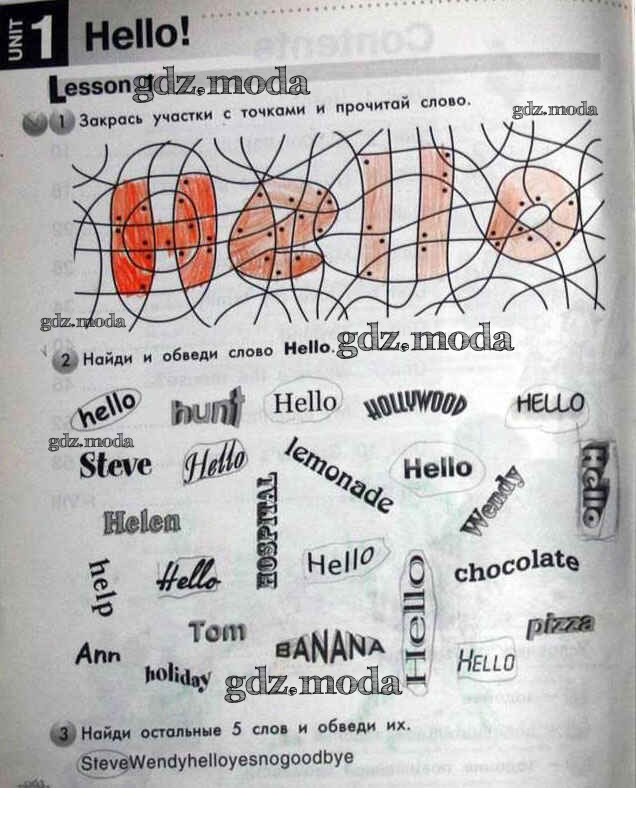 UNIT 1 Hello!
Lesson 1 gdz.moda
1 Закрась участки с точками и прочитай слово.
gdz.moda
Hello
gdz.moda
2 Найди и обведи слово Hello. gdz.moda
hello hunt Hello HOLLYWOOD HELLO
gdz.moda
Steve Hello lemonade Hello Wendy Hello
Helen HOSPITAL
help Hello Hello Hello chocolate
Ann Tom BANANA HELLO pizza
holiday gdz.moda
3 Найди остальные 5 слов и обведи их.
SteveWendyhelloyesnogoodbye